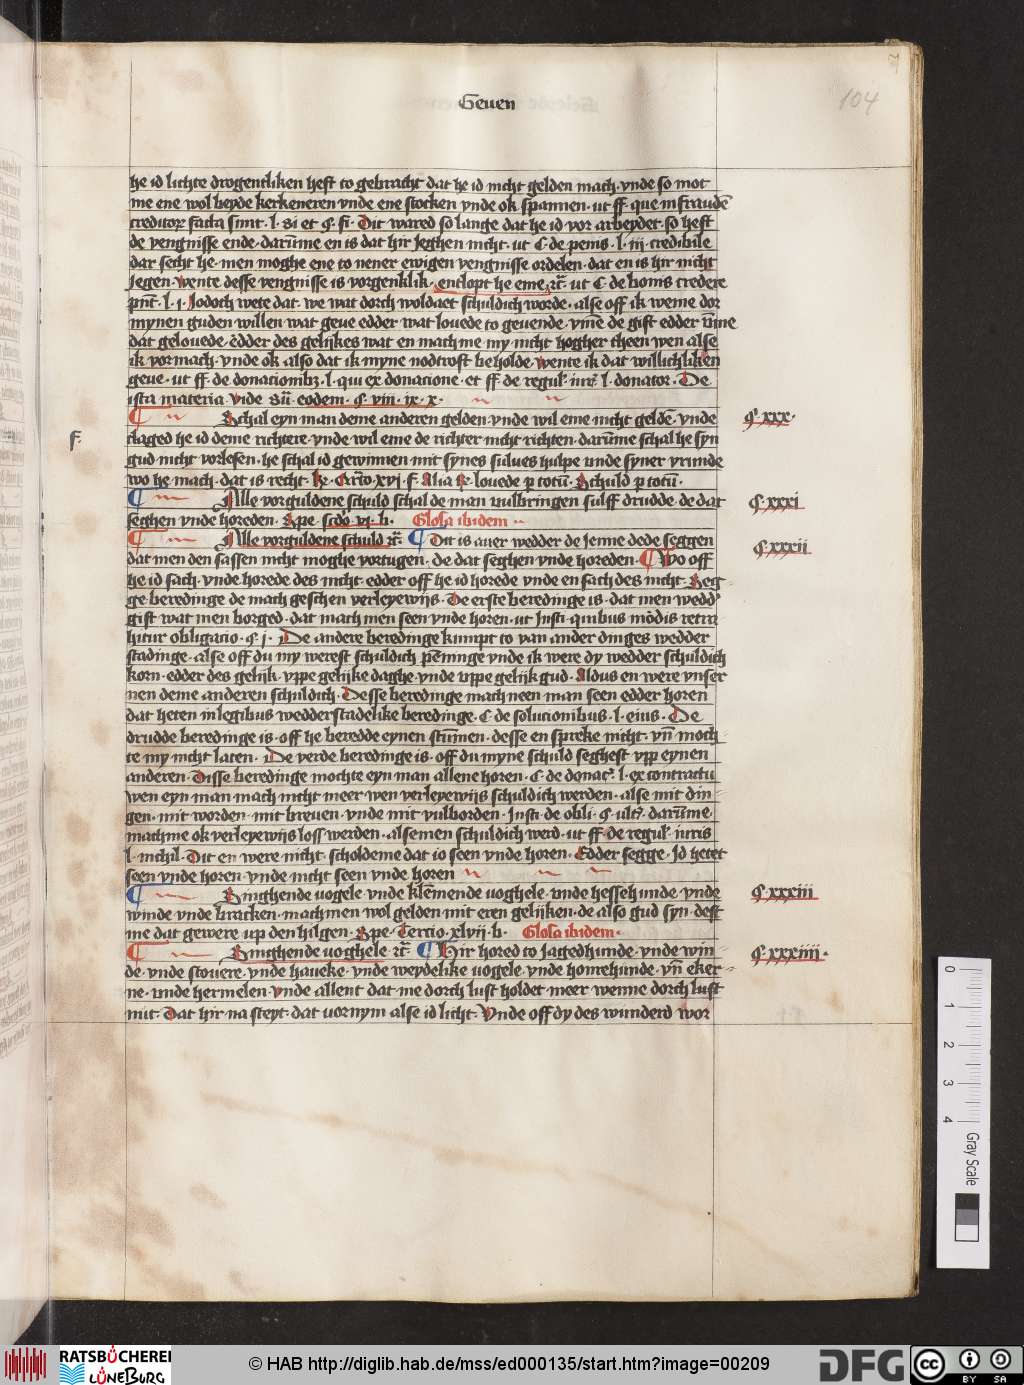 Geuen
104
he id lichte drogentliken heft to gebracht dat he id nicht gelden mach · vnde so mot
me ene wol beyde kerkeneren vnde ene stocken vnde ok spannen · ut ff que in fraudē
creditor facta sunt · l · si et · § · fi · Dit wared so lange dat he id vor arbeydet · so heft
de vengnisse ende · darūme en is dat hir Jeghen nicht · ut C · de penis · l · iij · credibile
dar secht he · men moghe ene to nener ewigen vengnisse ordelen · dat en is hir nicht
Jegen · Wente desse vengnisse is vorgenklik · entlopt he eme rc̄ · ut C de bonis credere
pn̄t · l · i · Jodoch wete dat · we wat dorch woldaet schuldich worde · alse off ik weme dor
mynen guden willen wat geue edder wat louede to geuende · vm̄e de gift edder vm̄e
dat gelouede · edder des gelijkes wat en mach me my nicht hogher theen wen alse
ik vormach · vnde ok also dat ik myne nodtroft beholde · wente ik dat willichliken
geue · ut ff · de donacionibꝫ · l · qui ex donacione · et ff de regul iur̄ l · donator · De
ista materia vide eodem · § · viij · ix · x ·
Schal eyn man deme anderen gelden vnde wil eme nicht geldē · vnde § · xxx ·
claged he id deme richtere · vnde wil eme de richter nicht richten · darūme schal he syn f ·
gud nicht vorlesen · he schal id gewinnen mit synes sulues hulpe vnde syner vrunde
wo he mach · dat is recht · xvj · f · Alia louede p totū · Schuld p totū ·
Alle vorguldene schuld schal de man vulbringen sulff drudde · de dat § · xxxi
seghen vnde horeden · Spe · scdo · vj · b · Glosa ibidem
Alle vorguldene schuld rc̄ · Dit is auer wedder de Jenne dede seggen § · xxxii
dat men den sassen nicht moghe vortugen · de dat seghen vnde horeden · Wo off
he id sach · vnde horede des nicht · edder off he id horede vnde en sach des nicht · Seg
ge · beredinge de mach geschen verleyewijs · De erste beredinge is · dat men wedd
gift wat men borged · dat mach men seen vnde horen · ut Insti · quibus modis retra
hitur obligacio · § · j · De andere beredinge kumpt to van ander dinges wedder
stadinge · alse off du my werest schuldich penninge vnde ik were dy wedder schuldich
korn · edder des gelijk · vppe gelijke daghe · vnde vppe gelijk gud · Aldus en were vnser
nen deme anderen schuldich · Desse beredinge mach neen man seen edder horen
dat heten in legibus wedderstadelike beredinge · C de solucionibus · l · eius · De
drudde beredinge is · off he beredde eynen stummen · desse en spreke nicht · vn̄ moch
te my nicht laten · De verde beredinge is · off du myne schuld seghest vpp eynen
anderen · Disse beredinge mochte eyn man allene horen · C · de donac̄ · l · ex contractu
wen eyn man mach nicht meer wen verleyewijs schuldich werden · alse mit din
gen · mit worden · mit breuen · vnde mit vulborden · Insti · de obli · § · ult · darūme
mach me ok verleyewijs loss werden · alse men schuldich werd · ut ff de regul iuris
l · nichil · Dit en were nicht · scholdeme dat io seen vnde horen · Edder segge · Jd hetet
seen vnde horen · vnde nicht seen vnde horen
Singhende uogele · vnde klemende uoghele · vnde hessehunde · vnde § · xxxiii
winde vnde bracken · mach men wol gelden mit eren gelijken · de also gud syn · deft
me dat gewere up den hilgen · Spe · Tercio · xlvij · b · Glosa ibidem ·
Singhende uoghele rc̄ · Hir hored to Jagedhunde · vnde win § · xxxiiii ·
de · vnde stouere · vnde haueke · vnde weydelike uogele · vnde honrehunde · vn̄ eker
ne · vnde hermelen · vnde allent dat me dorch lust holdet meer wenne dorch lust
nut · Dat hir na steyt · dat uornym alse id licht · Vnde off dy des wunderd wor
0 1 2 3 4 Gray Scale
RATSBÜCHEREI LÜNEBURG
© HAB http://diglib.hab.de/mss/ed000135/start.htm?image=00209
DFG
cc BY SA